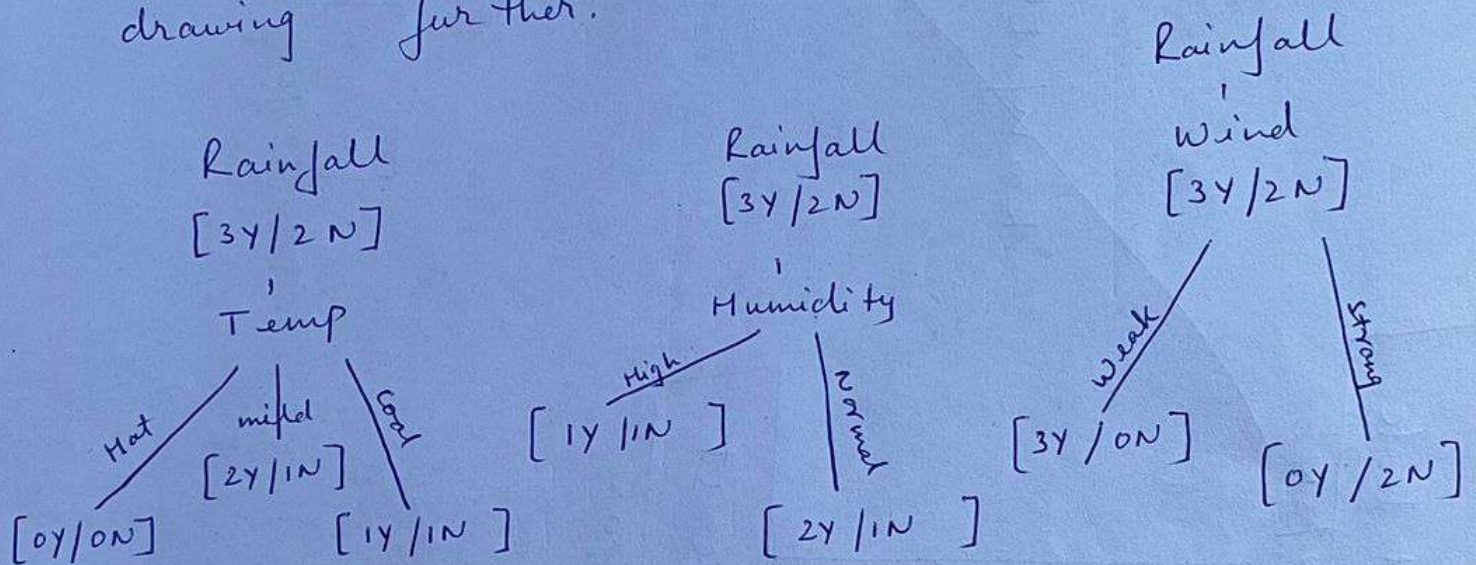 drawing further.
Rainfall
[3Y/2N]
Temp
Hot
mild
Cool
[0Y/0N]
[2Y/1N]
[1Y/1N]
Rainfall
[3Y/2N]
Humidity
High
Normal
[1Y/1N]
[2Y/1N]
Rainfall
Wind
[3Y/2N]
Weak
Strong
[3Y/0N]
[0Y/2N]